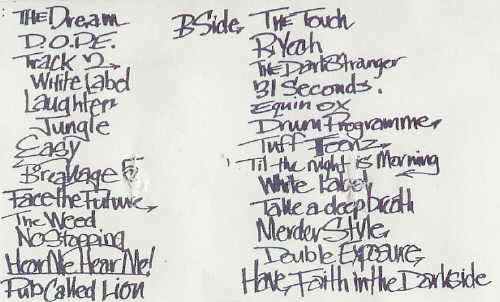 THE Dream
D.O.P.E.
Track 2
White Label
Laughter
Jungle
Easy
Breakage 5
Face the Future
The Weed
No Stopping
Hear Me Hear Me!
Pub Called Lion
B Side
THE Touch
R. Yeah
THE Dark Stranger
31 Seconds.
Equinox
Drum Programme
Tuff Teenz
'Til the night is Morning
White Label
Take a deep breath
Merder Style
Double Exposure
Have Faith in the Darkside